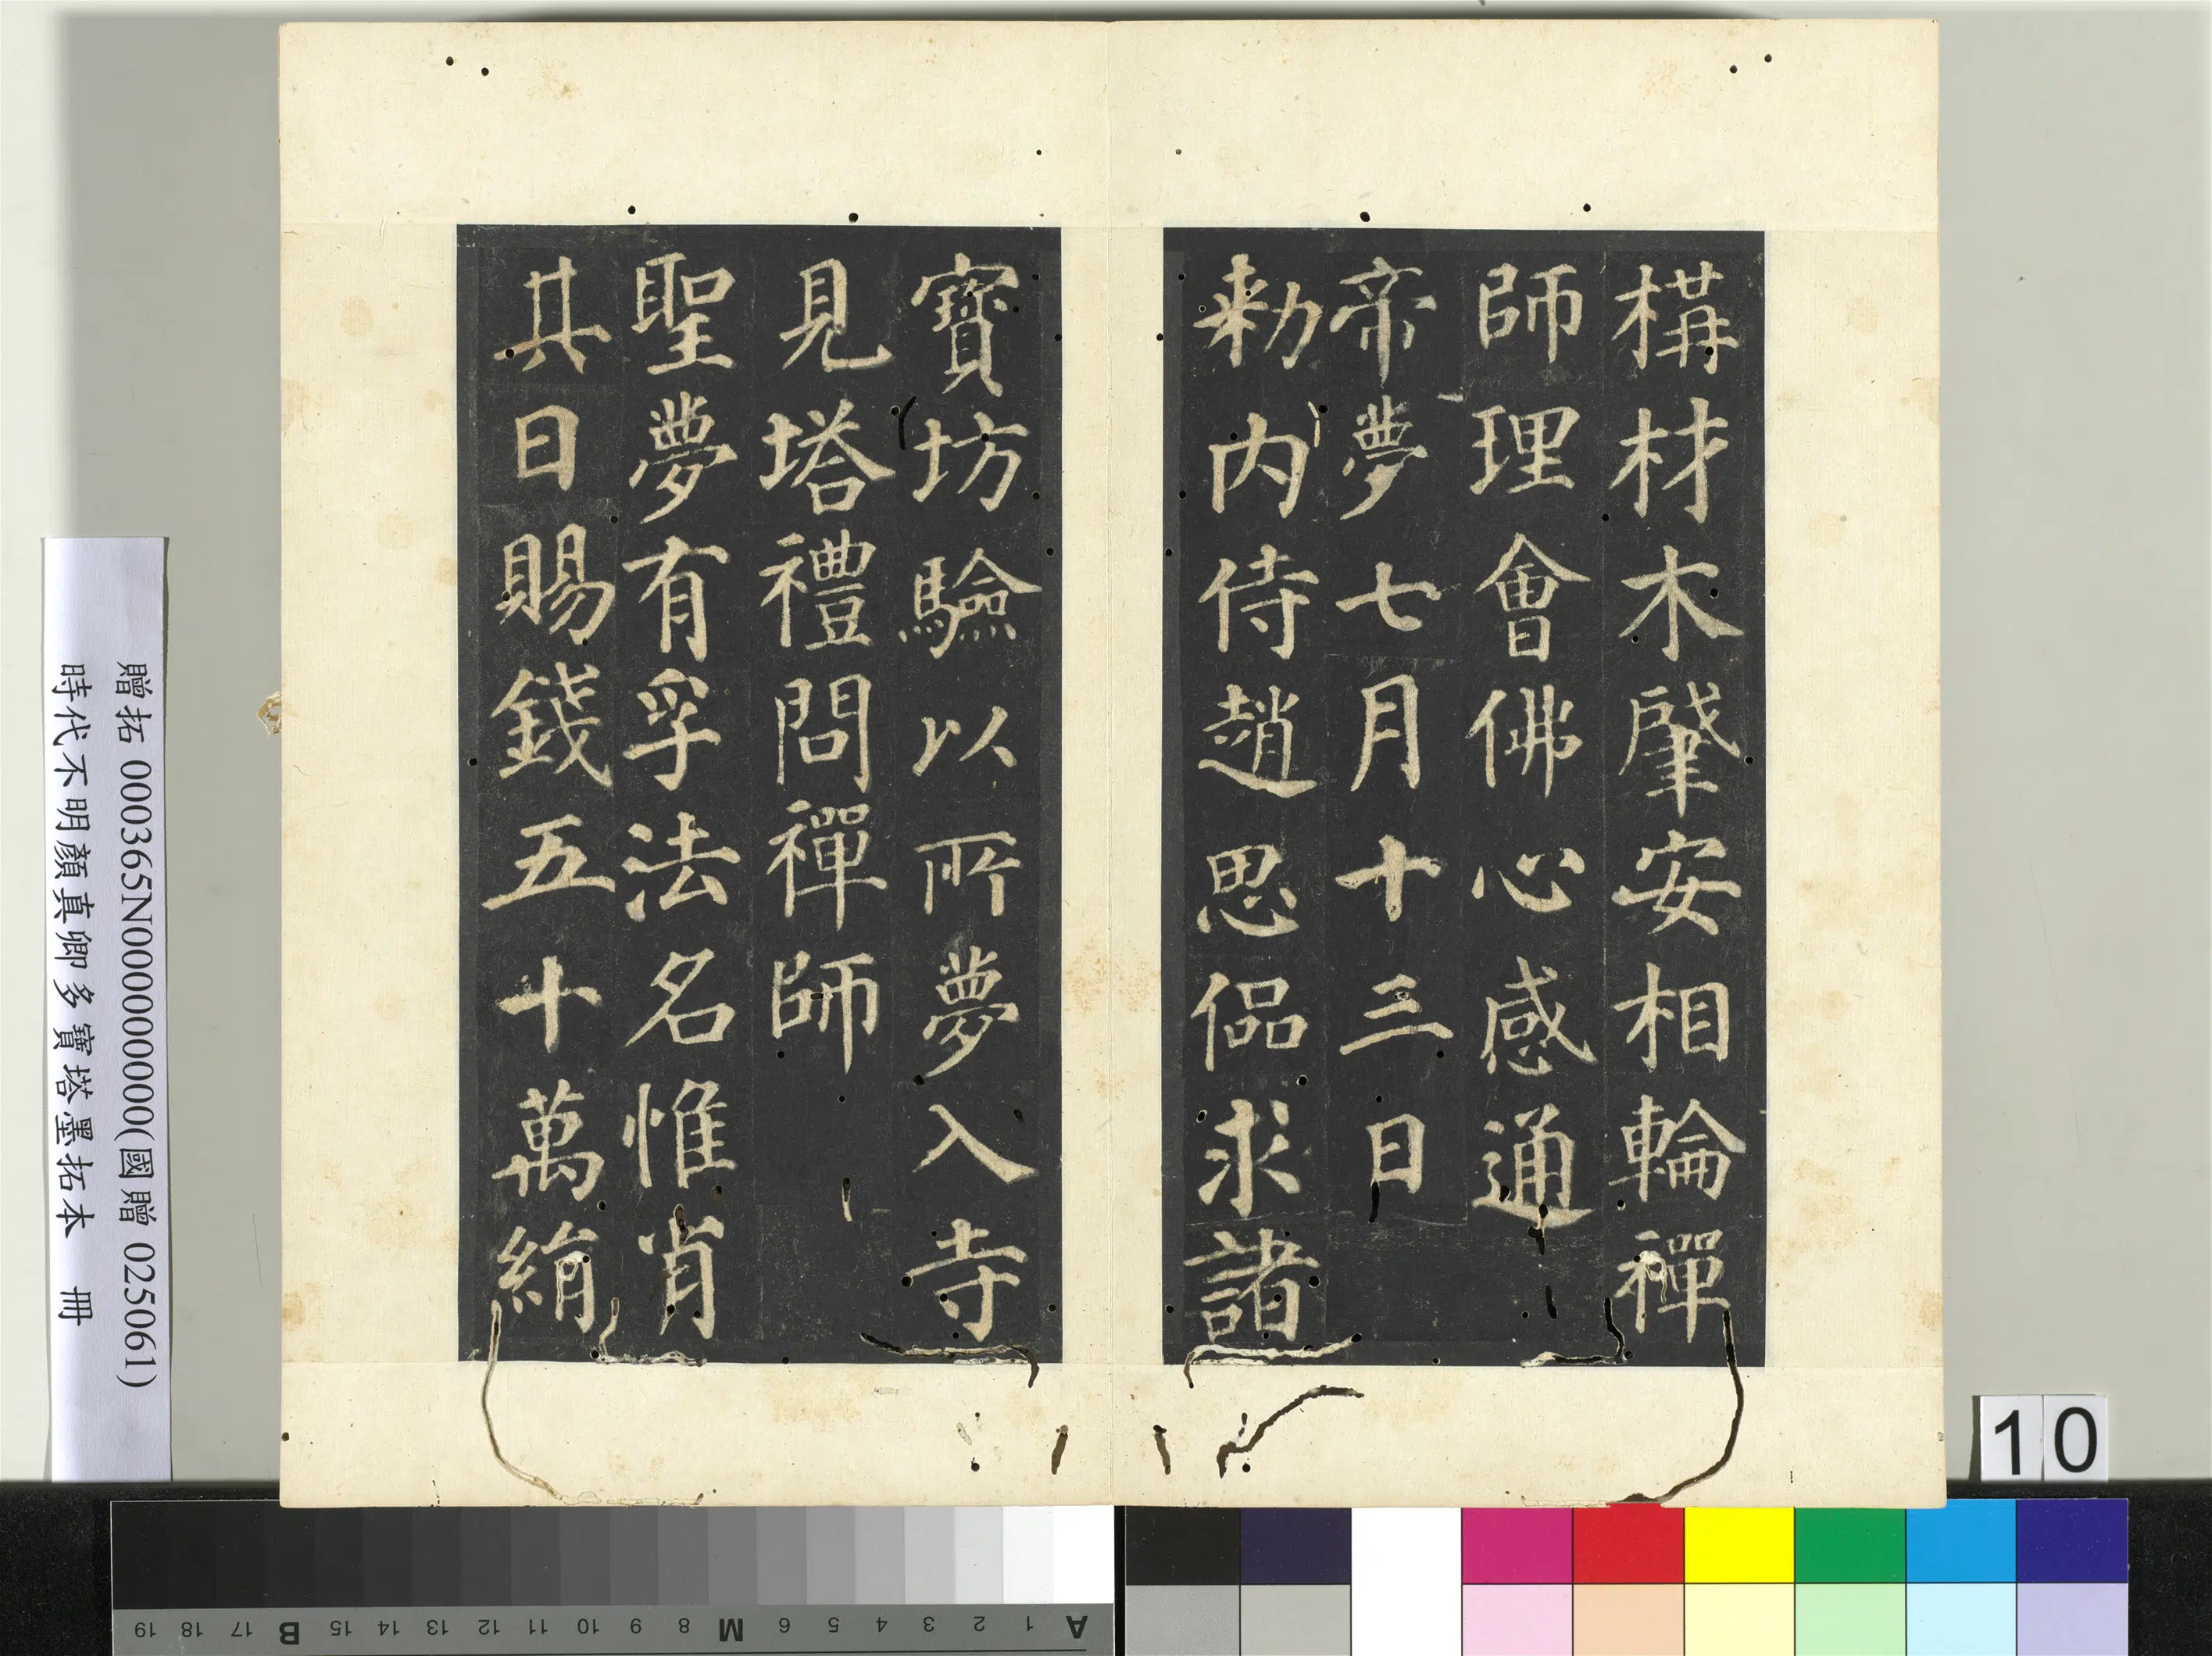 構材木肇安相輪禪
師理會佛心感通
帝夢七月十三日
勑内侍趙思偘求諸
寶坊驗以所夢入寺
見塔禮問禪師
聖夢有孚法名惟肖
其日賜錢五十萬絹
贈拓 000365N000000000(國贈 025061)
時代不明顏真卿多寶塔墨拓本 冊
10
A 1 2 3 4 5 6 M 8 9 10 11 12 13 14 15 B 17 18 19